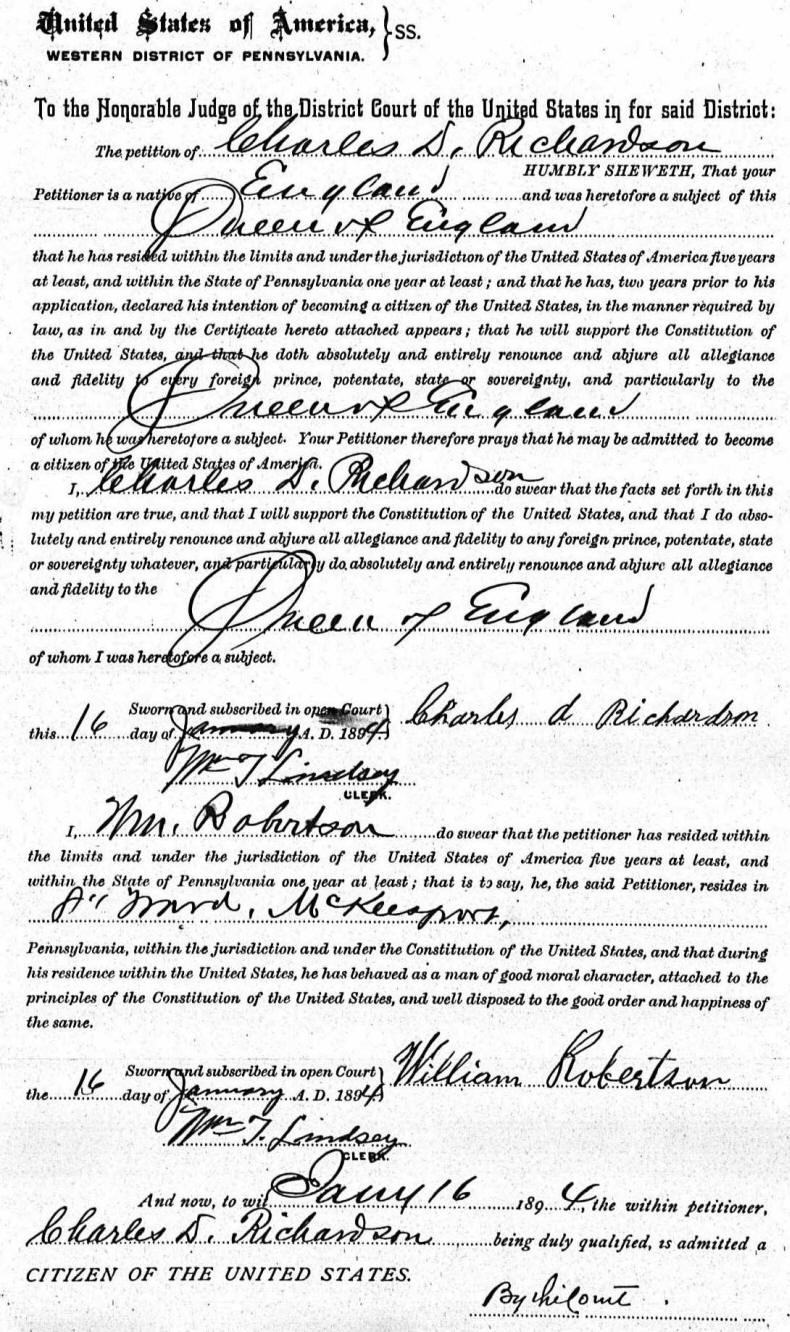 United States of America, } SS.
WESTERN DISTRICT OF PENNSYLVANIA.
To the Honorable Judge of the District Court of the United States in for said District:
The petition of Charles D. Richardson
HUMBLY SHEWETH, That your
Petitioner is a native of England and was heretofore a subject of this
Queen of England
that he has resided within the limits and under the jurisdiction of the United States of America five years
at least, and within the State of Pennsylvania one year at least; and that he has, two years prior to his
application, declared his intention of becoming a citizen of the United States, in the manner required by
law, as in and by the Certificate hereto attached appears; that he will support the Constitution of
the United States, and that he doth absolutely and entirely renounce and abjure all allegiance
and fidelity to every foreign prince, potentate, state or sovereignty, and particularly to the
Queen of England
of whom he was heretofore a subject. Your Petitioner therefore prays that he may be admitted to become
a citizen of the United States of America.
I, Charles D. Richardson do swear that the facts set forth in this
my petition are true, and that I will support the Constitution of the United States, and that I do abso-
lutely and entirely renounce and abjure all allegiance and fidelity to any foreign prince, potentate, state
or sovereignty whatever, and particularly do absolutely and entirely renounce and abjure all allegiance
and fidelity to the
Queen of England
of whom I was heretofore a subject.
Sworn and subscribed in open Court } Charles d Richardson
this 16 day of January A. D. 1894
Wm T Lindsey
CLERK.
I, Wm. Robertson do swear that the petitioner has resided within
the limits and under the jurisdiction of the United States of America five years at least, and
within the State of Pennsylvania one year at least; that is to say, he, the said Petitioner, resides in
Ward, McKeesport,
Pennsylvania, within the jurisdiction and under the Constitution of the United States, and that during
his residence within the United States, he has behaved as a man of good moral character, attached to the
principles of the Constitution of the United States, and well disposed to the good order and happiness of
the same.
Sworn and subscribed in open Court } William Robertson
the 16 day of January A. D. 1894
Wm T. Lindsey
CLERK.
And now, to wit Jany 16 1894, the within petitioner,
Charles D. Richardson being duly qualified, is admitted a
CITIZEN OF THE UNITED STATES.
By the Court.